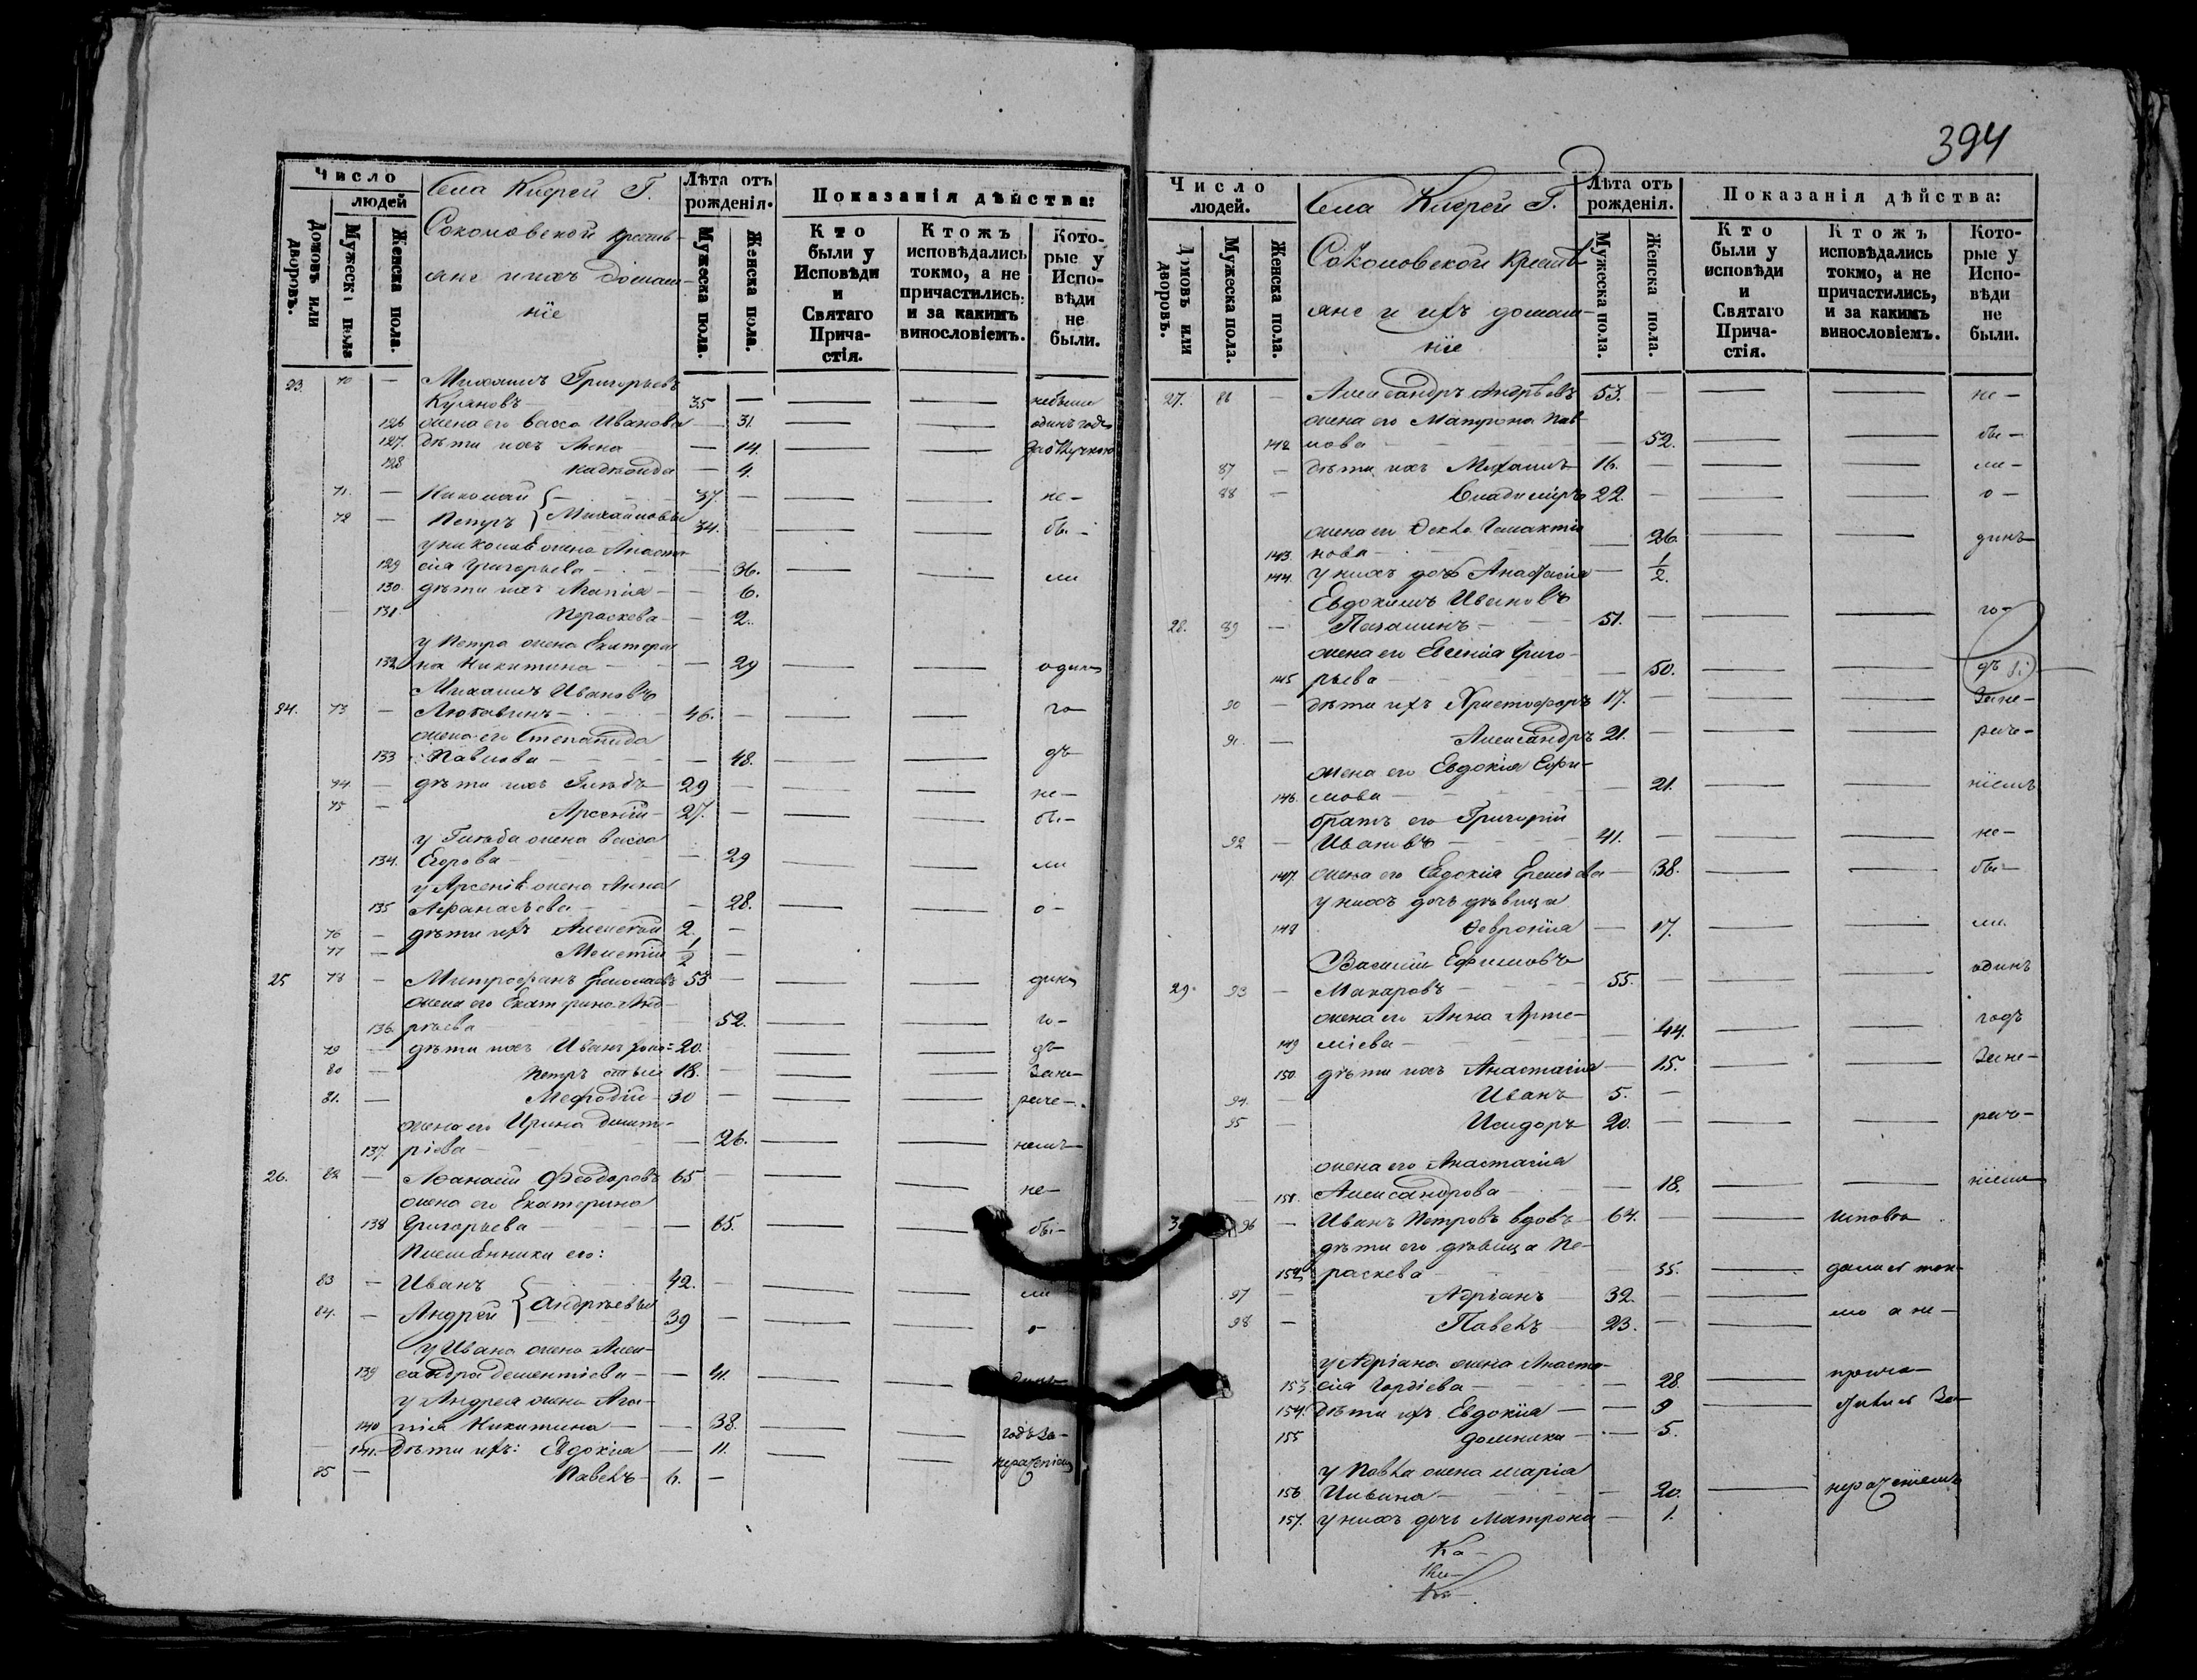 394
Число
людей
Домовъ или дворовъ.
Мужеска пола
Женска пола.
Села Г.
Соколовской крестья-
яне и ихъ домаш-
нїе
Лѣта отъ рожденія.
Мужеска пола.
Женска пола.
Показанія дѣйства:
Кто были у Исповѣди и Святаго Прича-стія.
Ктожъ исповѣдались токмо, а не причастились: и за какимъ винословіемъ.
Кото-рые у Испо-вѣди не были.
23. 70 — Михаилъ Григорьевъ
35 — небыли
126 жена его Васса Иванова — 31. одинъ годъ
127. дѣти ихъ Анна — 14.
128 Надежда — 4.
71. — Николай — 37. — не —
72 — Петръ } Михайловы 34. — бы —
у Николая жена Анаста-
129 сія Григорьева — 36. ли
130. дѣти ихъ Агапія — 6.
131. Параскева — 2.
у Петра жена Екатери-
132 на Никитина — 29 один
Михаилъ Ивановъ
24. 73 — Любавинъ — 46. — го-
жена его Степанида
133 Павлова — 48. дъ
74 — дѣти ихъ Глѣбъ — 29 — не —
75 — Арсеній — 27. — бы —
у Глѣба жена Васса
134. Егорова — 29 ли
у Арсенія жена Анна
135 Афанасьева — 28. о —
76 — дѣти ихъ Алексѣй 2. —
77 — 1/2 —
25 78 — Митрофанъ 53 — динъ
жена его Екатерина Анд-
136. рѣева 52. го —
79 — дѣти ихъ Иванъ 20. дъ
80 — Петръ 18. — Зане-
81. — Мефодій — 30 — раче-
жена его Ирина Димит-
137. ріева — 26. ніемъ
26. 82 — Афанасій Феодоровъ 65 — не —
жена его Екатерина
138 Григорьева — 65. бы —
Племянники его:
83 — Иванъ 42. — ли
84. — Андрей } Андрѣевы 39 — о —
у Ивана жена Алек-
139 сандра Дементіева — 41.
у Андрея жена Ага-
140 пія Никитина — 38. годъ за-
141. Дѣти ихъ: Евдокія — 11. нераченіем
85 — Павелъ — 6. —
Число
людей.
Домовъ или дворовъ.
Мужеска пола.
Женска пола.
Села Г.
Соколовской крестья-
яне и ихъ домаш-
нїе
Лѣта отъ рожденія.
Мужеска пола.
Женска пола.
Показанія дѣйства:
Кто были у исповѣди и Святаго Прича-стія.
Ктожъ исповѣдались токмо, а не причастились, и за какимъ винословіемъ.
Кото-рые у Испо-вѣди не были.
27. 86 — Александръ Андрѣевъ 53. — не —
жена его Матрона Пав-
142 лова — 52. бы —
87 — дѣти ихъ Михаилъ 16. — ли —
88 — Владиміръ 22. — о —
жена его Фекла Галактіо
143. нова — 26. динъ
144. у нихъ дочь Анастасія — 1/2.
Евдокимъ Ивановъ
28. 89 — 51. — го-
жена его Евгенія Григо-
145 рьева — 50. дъ
90 — дѣти ихъ Христофоръ 17. — Зане-
91. — Александръ 21. — раче-
жена его Евдокія Ефи-
146. мова — 21. ніемъ
братъ его Григорій
92 — Ивановъ — 41. — не —
147. жена его Евдокія — 38. бы —
у нихъ дочь дѣвица
148 Феврониа — 17. ли.
Василій Ефимовъ
29. 93 — Макаровъ 55. — одинъ
жена его Анна Арте-
149 міева — 44. годъ
150. дѣти ихъ Анастасія — 15. Зане-
94. — Иванъ 5. —
95 — Исидоръ 20. — раче-
жена его Анастасія
151. Александрова — 18. ніемъ
30 96 — Иванъ Петровъ вдовъ 64. — исповѣ
дѣти его дѣвица Па-
152 раскева — 35. дались ток-
97 — Адріанъ 32. —
98 — Павелъ 23. — мо а не —
у Адріана жена Анаста-
153 сія Гордіева — 28. прича-
154. Дѣти ихъ Евдокіа — 9 стились За-
155 Домника — 5.
у Павла жена Марія
156 Ильина — 20. нераченіемъ
157. у нихъ дочь Матрона — 1.